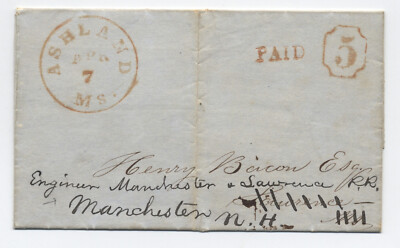 ASHLAND
7
Ms.
PAID
5
Henry Bacon Esq
Engineer Manchester & Lawrence R.R.
Manchester N. H.